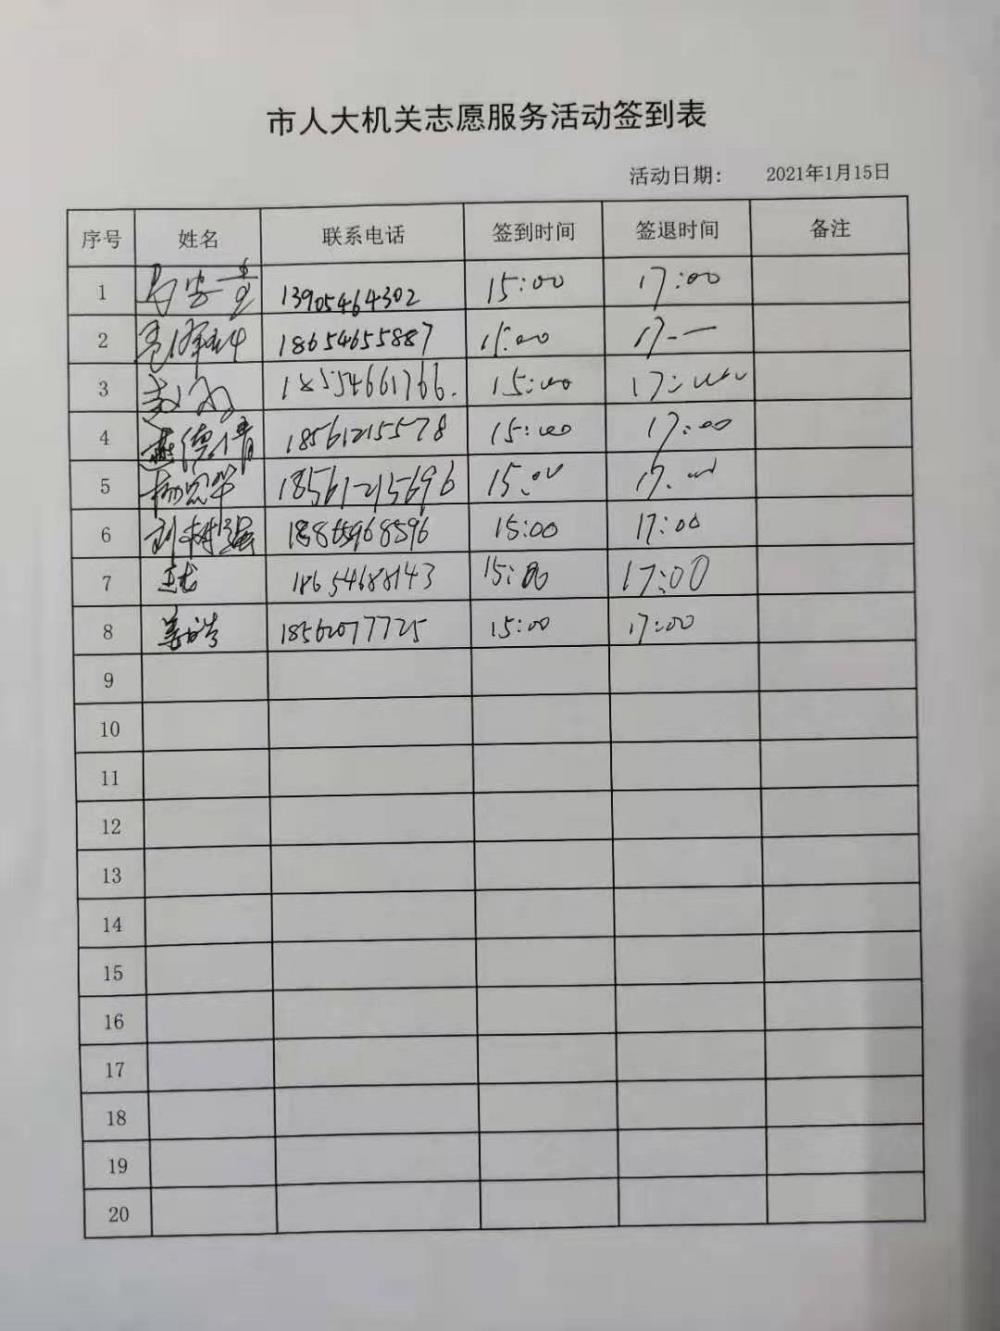 市人大机关志愿服务活动签到表
活动日期: 2021年1月15日
序号 姓名 联系电话 签到时间 签退时间 备注
1 13905464302 15:00 17:00
2 18654655887 15:00 17:—
3 18554661766. 15:00 17:00
4 赵德倩 18561215578 15:00 17:00
5 18561215696 15:00 17:00
6 刘树强 18865968596 15:00 17:00
7 18654688143 15:00 17:00
8 姜皓 18562077725 15:00 17:00
9
10
11
12
13
14
15
16
17
18
19
20